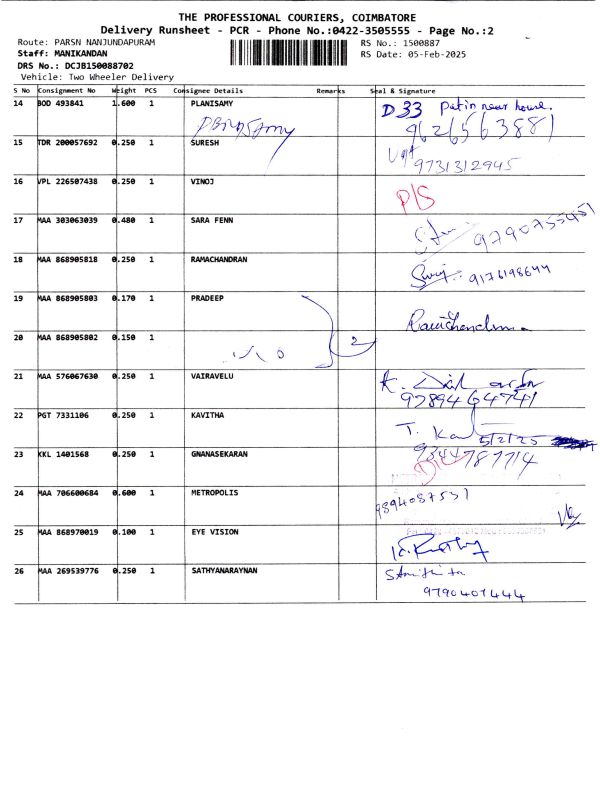 THE PROFESSIONAL COURIERS, COIMBATORE
Delivery Runsheet - PCR - Phone No.:0422-3505555 - Page No.:2
Route: PARSN NANJUNDAPURAM RS No.: 1500887
Staff: MANIKANDAN RS Date: 05-Feb-2025
DRS No.: DCJB150088702
Vehicle: Two Wheeler Delivery
S No Consignment No Weight PCS Consignee Details Remarks Seal & Signature
14 BOD 493841 1.600 1 PLANISAMY D33 near house.
9626563881
15 TDR 200057692 0.250 1 SURESH
9731312945
16 VPL 226507438 0.250 1 VINOJ P/S
17 MAA 303063039 0.480 1 SARA FENN 9790755451
18 MAA 868905818 0.250 1 RAMACHANDRAN 9176198644
19 MAA 868905803 0.170 1 PRADEEP
20 MAA 868905802 0.150 1 2
21 MAA 576067630 0.250 1 VAIRAVELU K.
9789464741
22 PGT 7331106 0.250 1 KAVITHA T. 5/2/25
23 KKL 1401568 0.250 1 GNANASEKARAN 9344787714
24 MAA 706600684 0.600 1 METROPOLIS 9894087531
25 MAA 868970019 0.100 1 EYE VISION
26 MAA 269539776 0.250 1 SATHYANARAYNAN
9790401444